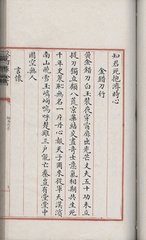 知君死抱濟時心
金錯刀行
黃金錯刀白玉裝夜穿窗扉出光芒丈夫五十功未立
提刀獨立顧八荒京華結交盡奇士意氣相期共生死
千年史冊恥無名一片丹心報天子爾來從軍天漢濱
南山曉雪玉嶙峋嗚呼楚雖三戶能亡秦豈有堂堂中
國空無人
言懷